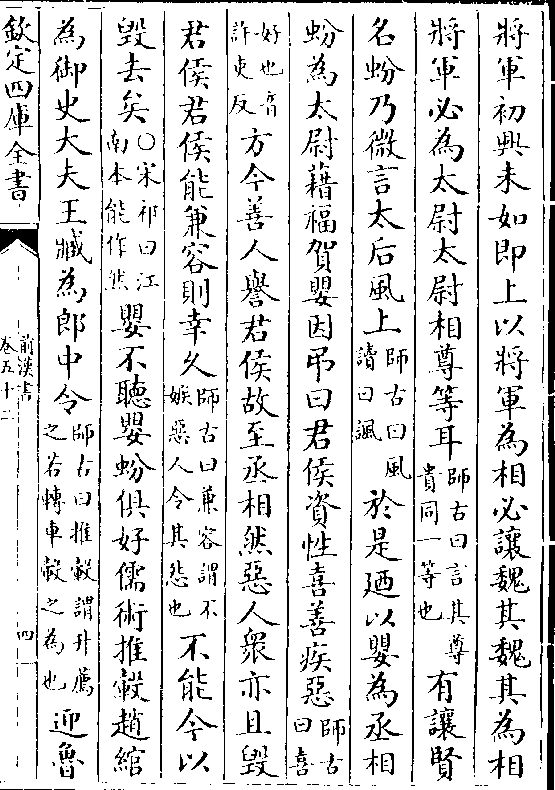 將軍初興未如即上以將軍為相必讓魏其魏其為相
將軍必為太尉太尉相尊等耳師古曰言其尊貴同一等也有讓賢
名蚡乃微言太后風上師古曰風讀曰諷於是廼以嬰為丞相
蚡為太尉藉福賀嬰因弔曰君侯資性喜善疾惡師古曰喜
好也音許吏反方今善人譽君侯故至丞相然惡人衆亦且毀
君侯君侯能兼容則幸久師古曰兼容謂不嫉惡人令其怨也不能今以
毀去矣○宋祁曰江南本能作然嬰不聽嬰蚡俱好儒術推轂趙綰
為御史大夫王臧為郎中令師古曰推轂謂升薦之若轉車轂之為也迎魯
欽定四庫全書
前漢書
卷五十二
四